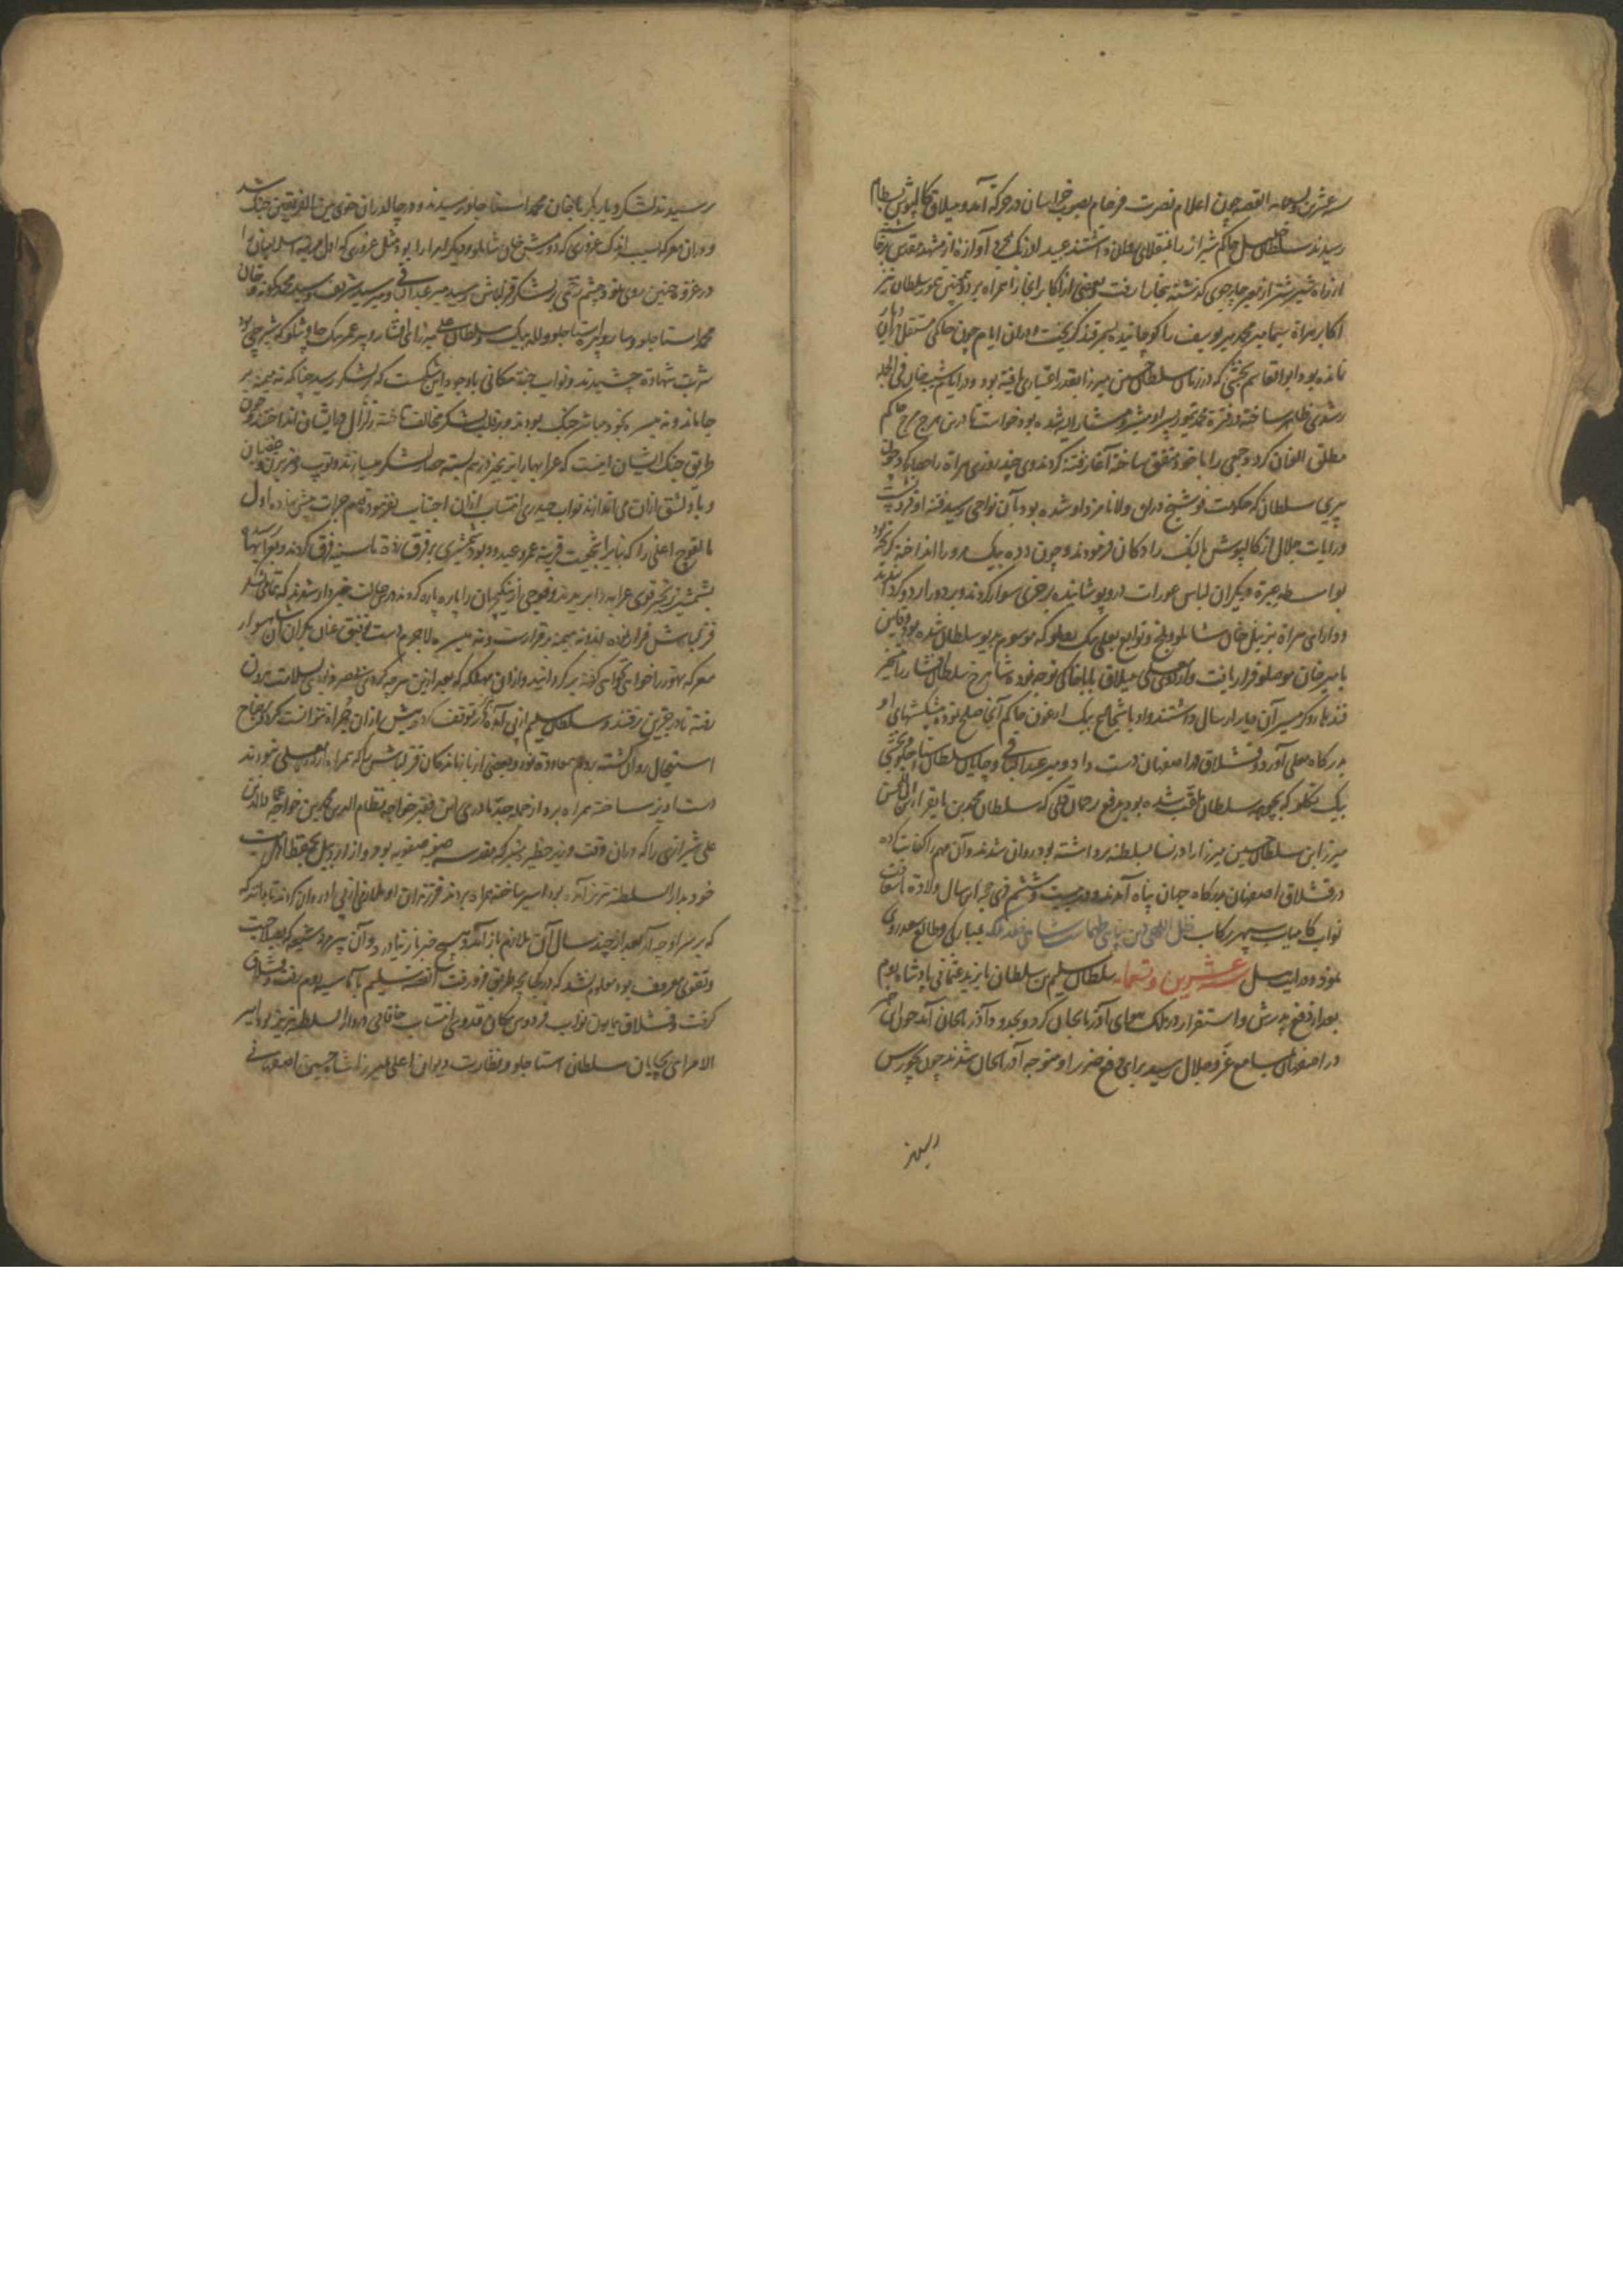 سنه عشرین و تسعمایه القصه چون اعلام نصرت فرجام بصوب خراسان در حرکة آمد و بییلاق کالپوش بسطام
رسیدند سلطان خلیل حاکم شیراز را بمنقلای روانه داشتند عبید اوزبک بمجرد آوازه از مشهد مقدس برخاسته
از راه شتر از نهر چارجوی گذشته ببخارا رفت و بعضی از اکابر را همراه برد و همچنین تیمور سلطان نیز
اکابر هراة سیما میر محمد میر یوسف را کوچانیده بسمرقند گریخت و در آن ایام چون حاکمی مستقل در هراة
نمانده بود ابوالقاسم بخشی که در زمان سلطان حسین میرزا بقدر اعتباری یافته بود و در ایام شیبک خان فی الجمله
رشدی ظاهر ساخته و در فترة محمد تیمور پسر او مشیر و مشار الیه شده بود خواست تا در این هرج مرج حاکم
مطلق العنان گردد جمعی را با خود متفق ساخته آغاز فتنه کردند و چند روزی هراة را حصار کرد چون
پیری سلطان که حکومت فوشنج در آن ولا نامزد او شده بود بآن نواحی رسید فتنه او فرو نشست
و رایات جلال از کالپوش بالنک رادکان فرمودند و چون دده بیک مرو را انداخته گریخته بود
بواسطه عبرة دیگران لباس عورات درو پوشانیده بر خری سوار کردند و بر دور اردو گردانیدند
و دارائی هراة بزینل خان شاملو و بلخ و توابع بعلی بیک روملو که موسوم بدیو سلطان شده بود و قاین
بامیر خان موصلو قرار یافت و اردوی معلی بییلاق باباخاکی توجه نموده شاهرخ سلطان افشار را به تسخیر
قندهار و گرمسیر آن دیار ارسال داشتند و او با شجاع بیک ارغون حاکم آنجا صلح نموده پیشکشهای او
بدرگاه معلی آورد و قشلاق در اصفهان دست داد و میر عبدالباقی و چایان سلطان استاجلو و یحیی
بیک تکلو که بچوهه سلطان ملقب شده بود بدفع رجال قلی که سلطان محمد بن بایقرا بن الحسن
میرزا بن سلطان حسین میرزا را در نسا بسلطنه برداشته بود روان شدند و آن مهم را کفایت کرده
در قشلاق اصفهان بدرگاه جهان پناه آمدند و در بیست و ششم ذی حجه این سال ولادة با سعادت
نواب کامیاب سپهر رکاب ظل اللهی دین پناهی طهماسب شاهی خلد ملکه بمبارکی و طالع سعد روی
نمود و در این سال سنه عشرین و تسعمایه سلطان سلیم بن سلطان بایزید عثمانی پادشاه روم
بعد از دفع پدرش و استقرار در ملک هوای آذربایجان کرد و بحدود آذربایجان آمد چون این خبر
در اصفهان بمسامع عز و جلال رسید برای دفع ضرر او متوجه آذربایجان شدند چون بچورس
رسیدند
رسیدند لشکر دیار بکر با خان محمد استاجلو رسیدند و در چالدران خوی بین الفریقین جنگ شد
و در آن معرکه بسبب اندک غروری که دورمش خان شاملو و دیگر امرا را بود مثل غروری که اول مرتبه مسلمانان را
در غزوه حنین روی نمود چشم زخمی بلشکر قزلباش رسید میر عبدالباقی و میر سید شریف و سید محمد کمونه و خان
محمد استاجلو و ساروپیره استاجلو و لله بیک و سلطان علی میرزای افشار و پیر عمر بیک چاوشلو که شیرجی بود
شربت شهادة چشیدند و نواب جنة مکانی با وجود این شکست که بلشکر رسید چنانکه نه میمنه بر
جا ماند و نه میسره بخود مباشر جنگ بودند و بر قلب لشکر مخالف تاخته زلزال در ایشان انداختند و چون
طریق جنگ ایشان اینست که عرابها را بزنجیر در هم بسته حصار لشکر میسازند و توپ و ضربزن و
و بادلشق از آن می اندازند نواب حیدری انتساب از آن اجتناب نفرموده بهم جرات پیش نهاده اول
مالقوج اغلی را که بنابر شجاعت قرینه عمرو عبد ود بود بشمشیری بر فرق زده تا سینه فرق کردند و بعرابها رسیده
بشمشیر زنجیر قوی عرابه را بریدند و فوجی از ینکچریان را پاره پاره کردند در آن حالت خبردار شدند که تمامی لشکر
قزلباش فرار نموده اند و نه میمنه برقرارست و نه میسره لاجرم دست توفیق عنان یکران آن شهسوار
معرکه تهور را خواهی نخواهی گرفته برگردانید و از آن مهلکه که بعید از این سرچه کردی متصور نبودی سلامت بیرون
رفته تا درجزین رفتند و سلطان سلیم از پی آمده در تبریز توقف کرد و بیش از آن همراه نتوانست کرد و بجناح
استعجال روان گشته بروم معاودة نمود و بعضی از بازماندگان قزلباش را که همراه اردوی معلی نبودند
دست آویز ساخته همراه برد از جمله جد مادری این فقیر خواجه نظام الدین احمد بن خواجه عماد الدین
علی شیرازی را که در آن وقت وزیر حظیره متبرکه مقدسه صفیه صفویه بود و از اردبیل بجهت
خود بدار السلطنه تبریز آمده بود اسیر ساخته همراه بردند فرزندان او ملازمی از پی او روان کردند تا بداند که
که بر سر او چه آمد بعد از چند سال آن ملازم باز آمد و هیچ خبر باز نیاورد و آن پیر مرد شیعه که بصلاحیت
و تقوی معروف بود معلوم نشد که در کجا و چه طریق فرو رفت القصه سلطان سلیم بآماسیه روم رفت و قشلاق
گرفت و قشلاق همایون نواب فردوس مکانی قدوسی انتساب خاقانی در دار السلطنه تبریز بود امیر
الامرائی بچایان سلطان استاجلو و نظارت دیوان اعلی بمیرزا شاه حسین اصفهانی